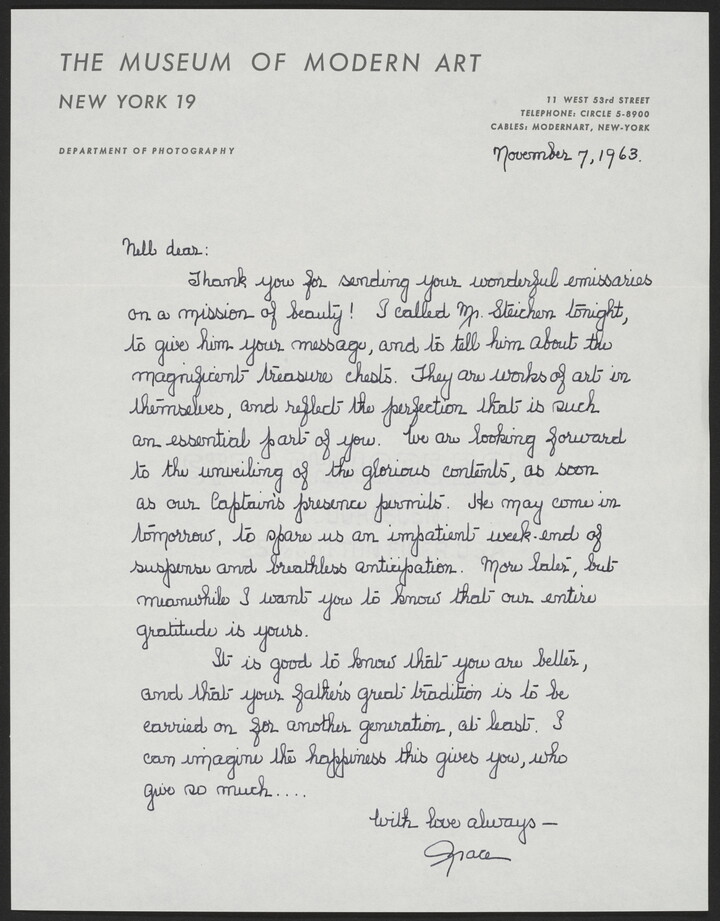 THE MUSEUM OF MODERN ART
NEW YORK 19
11 WEST 53rd STREET
TELEPHONE: CIRCLE 5-8900
CABLES: MODERNART, NEW-YORK
DEPARTMENT OF PHOTOGRAPHY
November 7, 1963.
Nell dear:
Thank you for sending your wonderful emissaries
on a mission of beauty! I called Mr. Steichen tonight,
to give him your message, and to tell him about the
magnificent treasure chests. They are works of art in
themselves, and reflect the perfection that is such
an essential part of you. We are looking forward
to the unveiling of the glorious contents, as soon
as our Captain's presence permits. He may come in
tomorrow, to spare us an impatient week-end of
suspense and breathless anticipation. More later, but
meanwhile I want you to know that our entire
gratitude is yours.
It is good to know that you are better,
and that your father's great tradition is to be
carried on for another generation, at least. I
can imagine the happiness this gives you, who
give so much....
With love always—
Grace